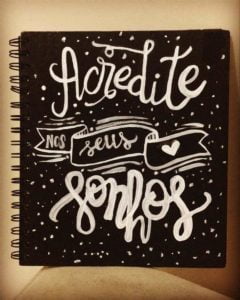 Acredite
nos seus
sonhos